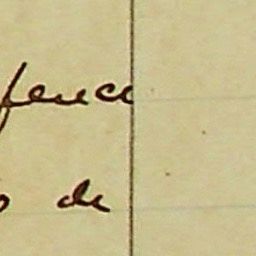 fence
o de